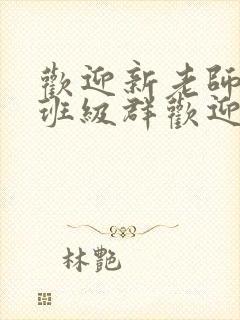 歡迎新老師
班級群歡迎
林艷